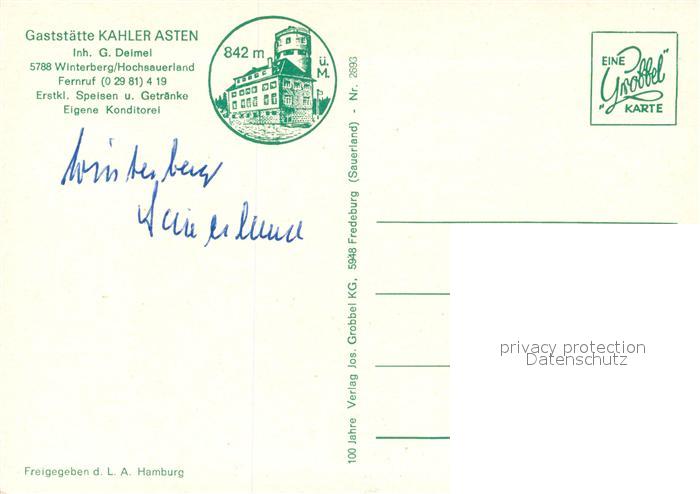 Gaststätte KAHLER ASTEN
Inh. G. Deimel
5788 Winterberg/Hochsauerland
Fernruf (0 29 81) 4 19
Erstkl. Speisen u. Getränke
Eigene Konditorei
842 m
ü.
M.
Winterberg
Sauerland
Freigegeben d. L. A. Hamburg
100 Jahre Verlag Jos. Grobbel KG, 5948 Fredeburg (Sauerland) - Nr. 2693
EINE
„Grobbel"
KARTE
privacy protection
Datenschutz